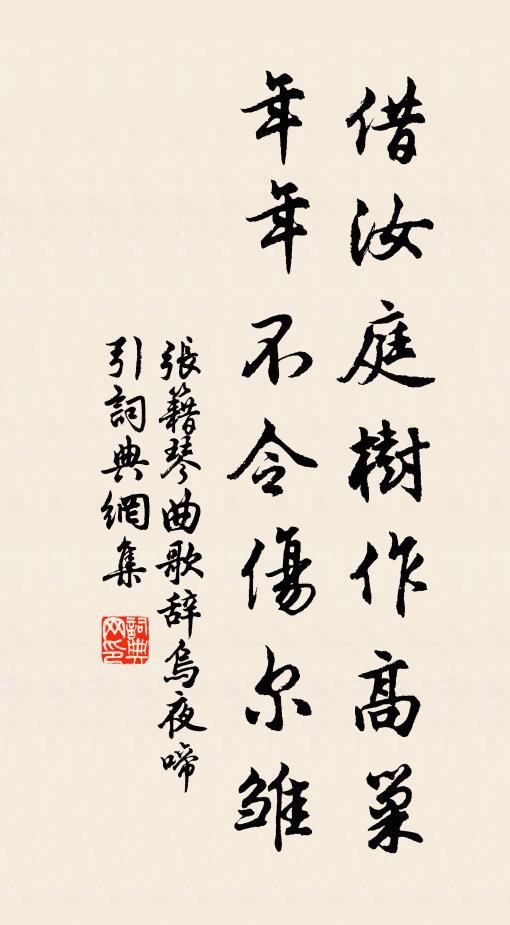 借汝庭樹作高巢
年年不令傷尔雏
張籍琴曲歌辞烏夜啼
引詞典網集
詞典网印